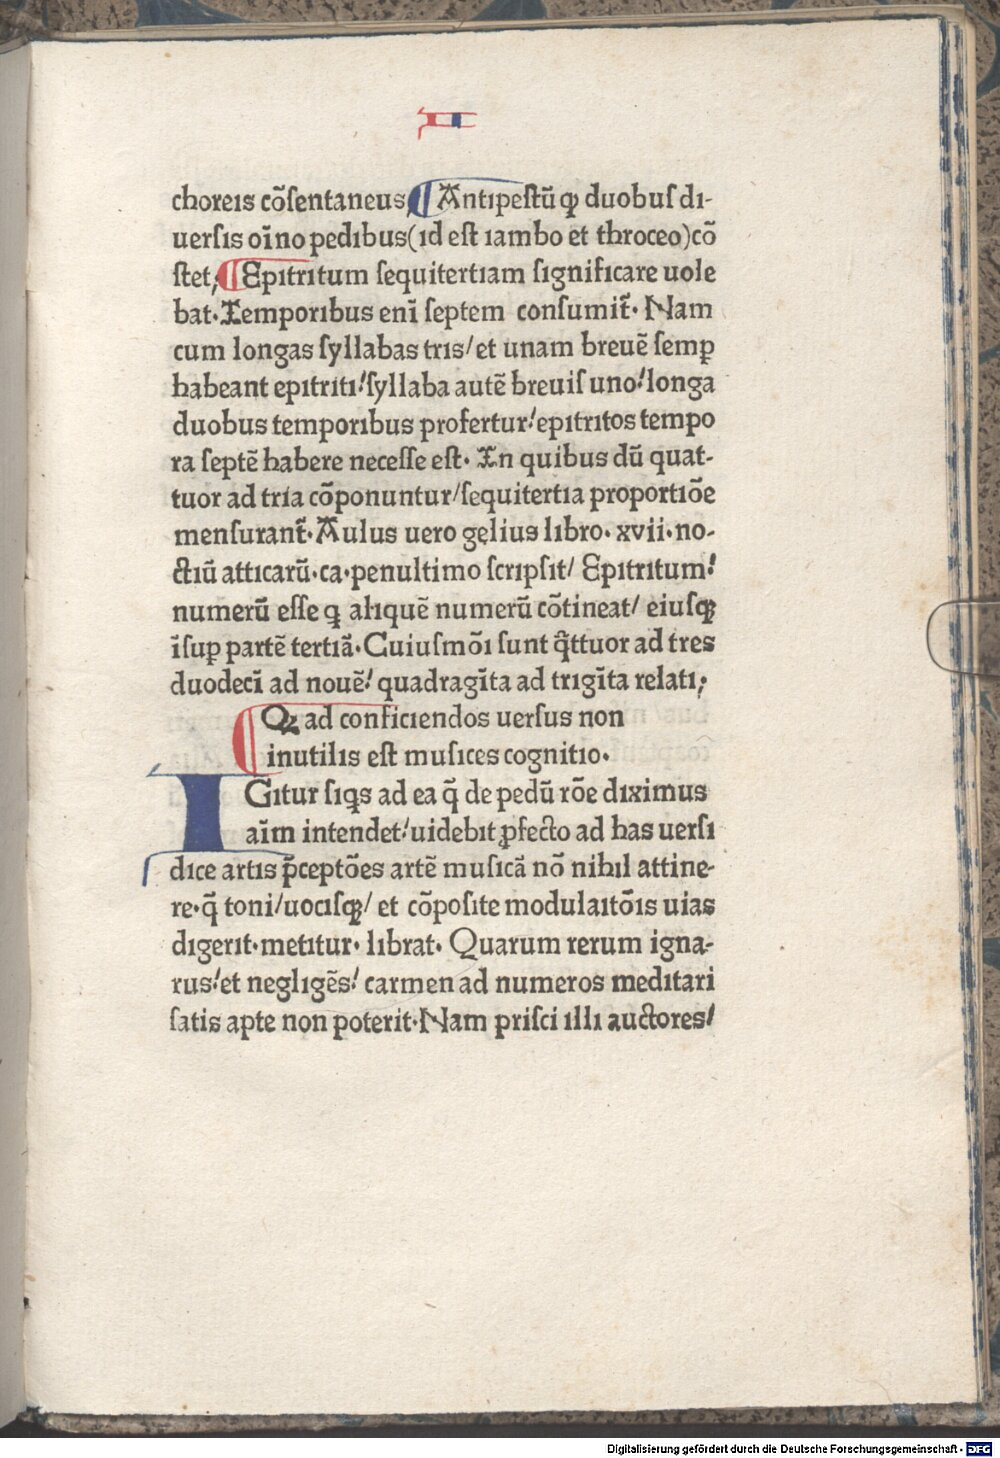 II
choreis cõſentaneus, ¶ Antipeſtũ ꝙ duobuſ di-
uerſis oĩno pedibus(id eſt iambo et throceo)cõ
ſtet; ¶ Epitritum ſequitertiam ſignificare uole
bat· Temporibus enĩ ſeptem conſumit̃· Nam
cum longas ſyllabas tris/et unam breuẽ ſemꝑ
habeant epitriti!ſyllaba autẽ breuiſ uno!longa
duobus temporibus profertur!epitritos tempo
ra ſeptẽ habere neceſſe eſt· In quibus dũ quat-
tuor ad tria cõponuntur/ſequitertia proportiõe
menſurant̃· Aulus uero gelius libro· xvii·no-
ctiũ atticarũ·ca·penultimo ſcripſit/ Epitritum!
numerũ eſſe q aliquẽ numerũ cõtineat/ eiuſꝗ
ĩſuꝑ partẽ tertiã· Cuiuſmõi ſunt q̃ttuor ad tres
duodecĩ ad nouẽ! quadragĩta ad trigĩta relati;
Qꝫ ad conficiendos uerſus non
inutilis eſt muſices cognitio.
IGitur ſiqs ad ea q̃ de pedũ rõe diximus
aĩm intendet!uidebit ꝓfecto ad has uerſi
dice artis p̃ceptões artẽ muſicã nõ nihil attine-
re·q̃ toni/uociſꝗ/ et cõpoſite modulaitõis uias
digerit·metitur· librat· Quarum rerum igna-
rus!et negligẽs! carmen ad numeros meditari
ſatis apte non poterit·Nam priſci illi auctores!
Digitalisierung gefördert durch die Deutsche Forschungsgemeinschaft - DFG